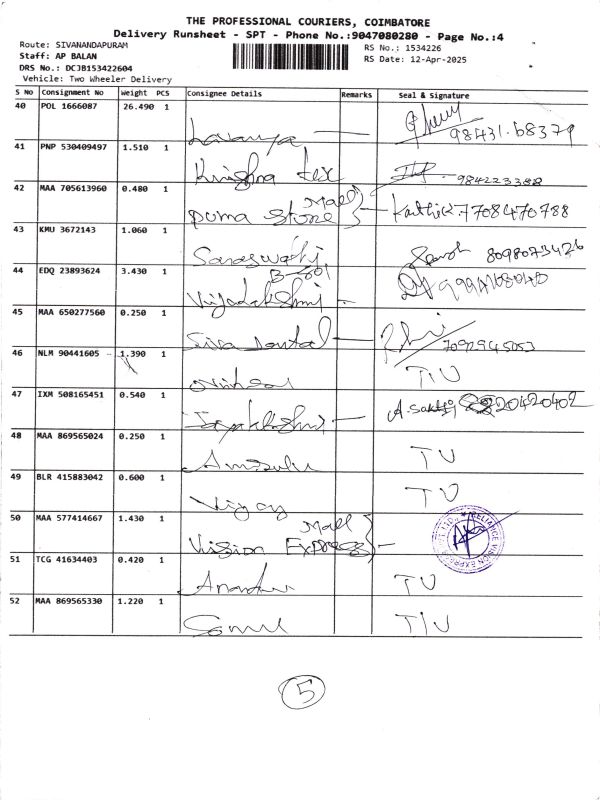 THE PROFESSIONAL COURIERS, COIMBATORE
Delivery Runsheet - SPT - Phone No.:9047080280 - Page No.:4
Route: SIVANANDAPURAM
RS No.: 1534226
Staff: AP BALAN
RS Date: 12-Apr-2025
DRS No.: DCJB153422604
Vehicle: Two Wheeler Delivery
S No Consignment No Weight PCS Consignee Details Remarks Seal & Signature
40 POL 1666087 26.490 1 Lavanya 98431.68379
41 PNP 530409497 1.510 1 Krishna tex 984223388
42 MAA 705613960 0.480 1 Puma Store Mall Karthick.7708470788
43 KMU 3672143 1.060 1 Saraswathi 8098073426
44 EDQ 23893624 3.430 1 Vijayalakshmi
45 MAA 650277560 0.250 1 Siva Dental 7092945053
46 NLM 90441605 1.390 1 T/U
47 IXM 508165451 0.540 1 Jayalakshmi A.Sakthi
48 MAA 869565024 0.250 1 TU
49 BLR 415883042 0.600 1 Vijay TU
50 MAA 577414667 1.430 1 Vission Express Mall
51 TCG 41634403 0.420 1 TU
52 MAA 869565330 1.220 1 T/U
5